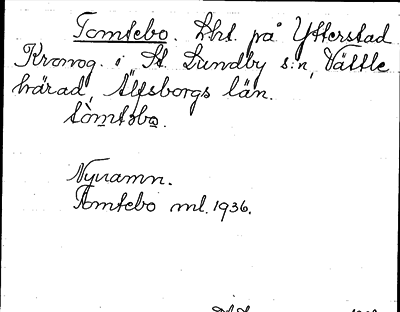 Tomtebo. Lht. på Ytterstad
Kronog. i St. Lundby s:n, Vättle
härad, Älfsborgs län.
tòmtəbo.
Nynamn.
Tomtebo ml. 1936.